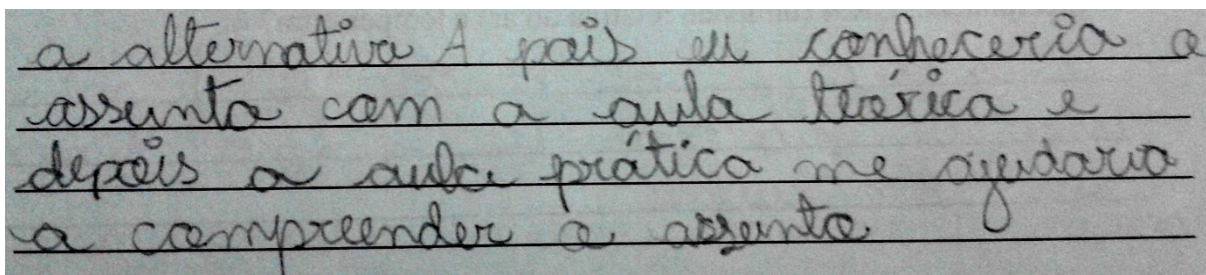 a alternativa A pois eu conheceria o
assunto com a aula teórica e
depois a aula prática me ajudaria
a compreender o assunto